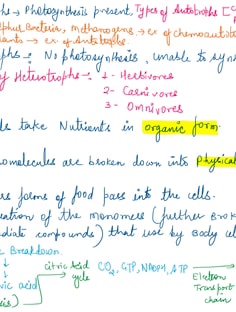 hs → Photosynthesis present, Types of Autotrophs
Bacteria, Methanogens → ex of chemoautot
ants → ex of Autotrophs.
phs :- No photosynthesis, unable to syn
f Heterotrophs :- 1 - Herbivores
2 - Carnivores
3 - Omnivores
ds take Nutrients in organic form.
omolecules are broken down into physical
forms of food pass into the cells.
ation of the monomers (further brok
diate compounds) that use by body cel
Breakdown.
citric Acid cycle
CO2, GTP, NADPH, ATP
Electron Transport chain
vic acid